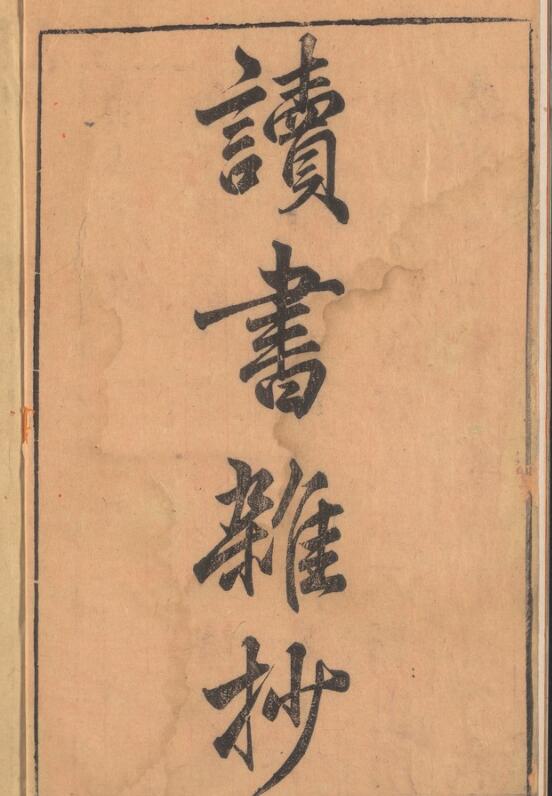 讀書雜抄